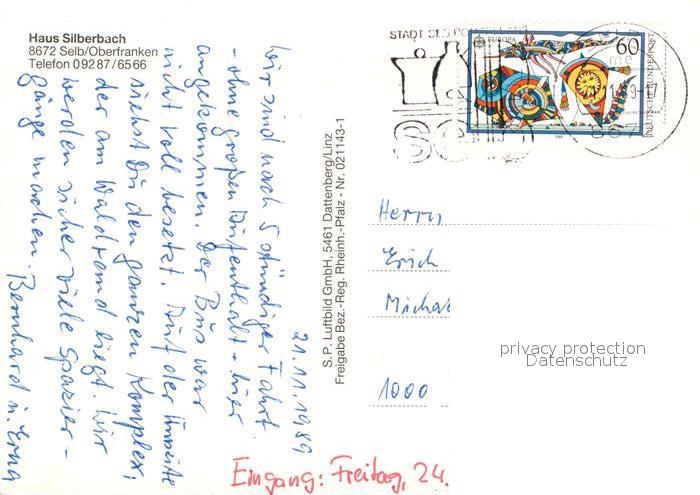 Haus Silberbach
8672 Selb/Oberfranken
Telefon 0 92 87 / 65 66
21.11.1989
Wir sind nach 5 stündiger Fahrt
- ohne großen Aufenthalt - hier
angekommen. Der Bus war
nicht voll besetzt. Auf der Umseite
siehst Du den ganzen Komplex,
der am Waldrand liegt. Wir
werden sicher viele Spazier-
gänge machen.
Bernhard u. Erna
S.P. Luftbild GmbH, 5461 Dattenberg/Linz
Freigabe Bez.-Reg. Rheinh.-Pfalz - Nr. 021143-1
STADT DES PORZELLANS
SELB
EUROPA
60
DEUTSCHE BUNDESPOST
867
Herrn
Erich
Michael
1000
privacy protection
Datenschutz
Eingang: Freitag, 24.